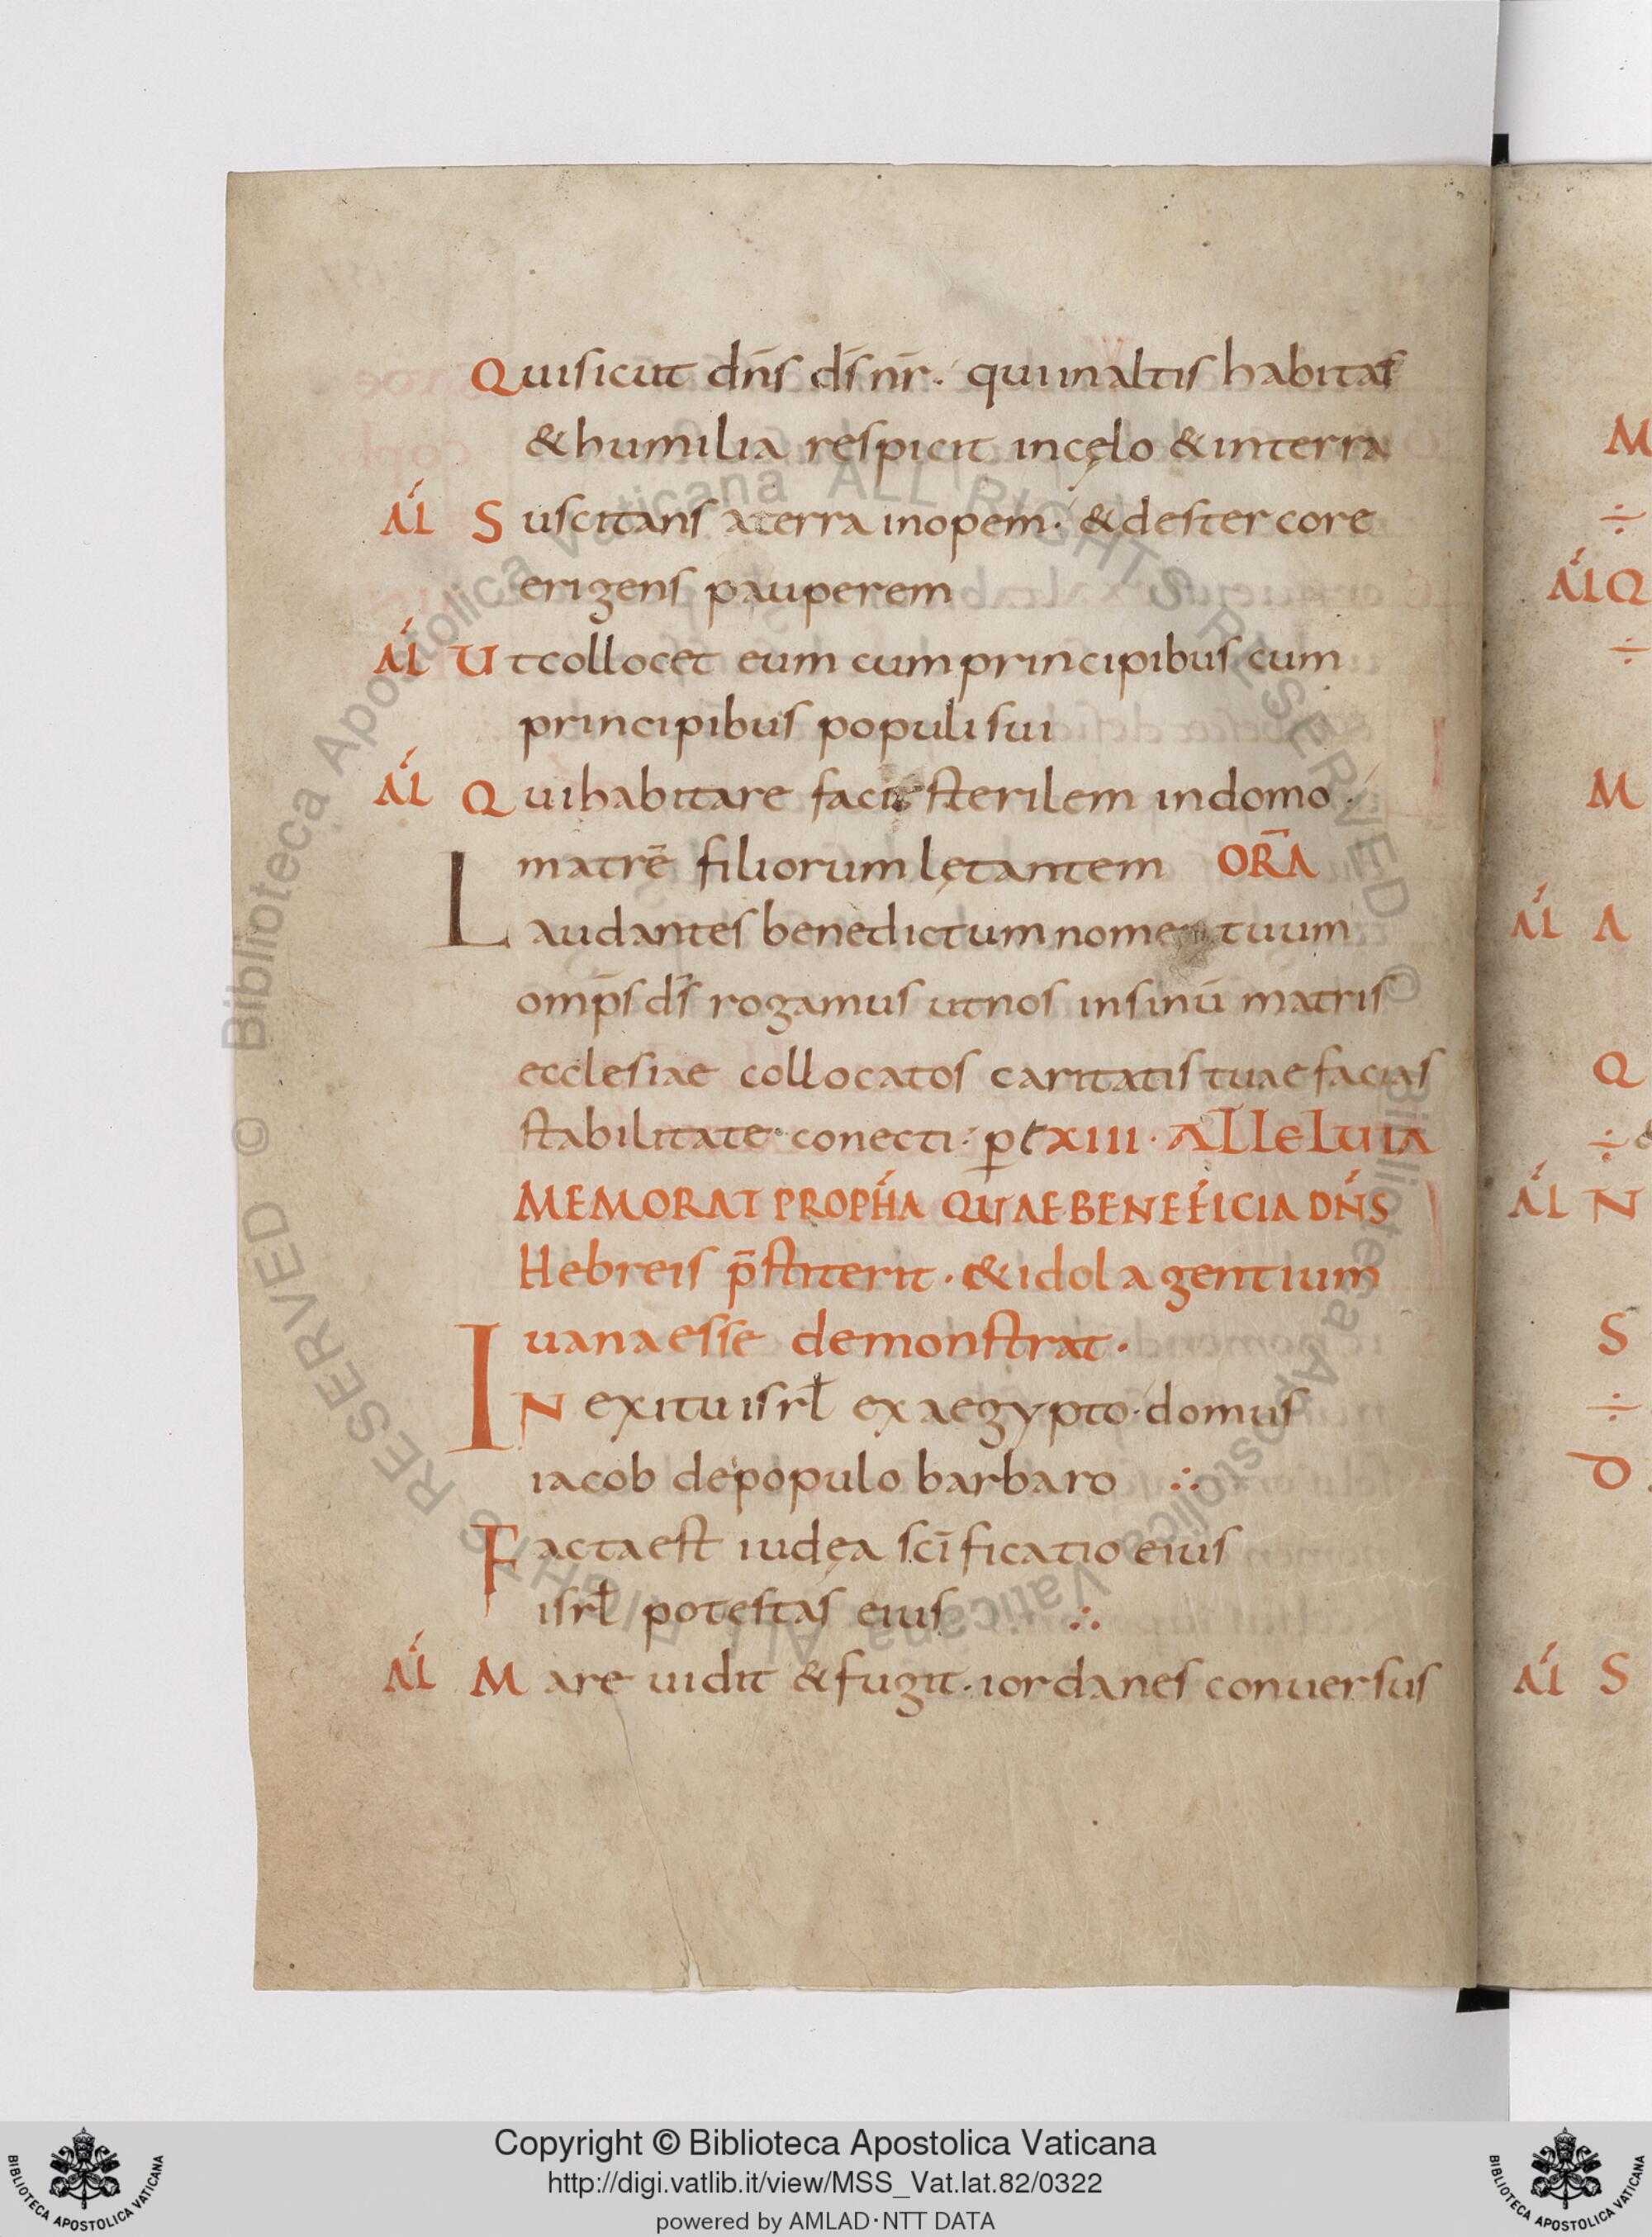 Quisicut dn̄s ds̄ nr̄. qui in altis habitat
& humilia respicit in cęlo & in terra
AL Suscitans a terra inopem. & de stercore
erigens pauperem
AL Ut collocet eum cum principibus cum
principibus populi sui
AL Qui habitare facit sterilem in domo.
matrē filiorum lętantem ORĀ
Laudantes benedictum nomen tuum
omp̄s ds̄ rogamus ut nos in sinū matris
ecclesiae collocatos caritatis tuae facias
stabilitate conecti. p̱ CXIII. ALLELUIA
MEMORAT PROPH́A QUAE BENEFICIA DN̄S
Hebreis p̄stiterit. & idola gentium
uana esse demonstrat.
IN exitu isrl̄ ex aegypto. domus
iacob de populo barbaro ∴
Facta est iudęa scīficatio eius
isrl̄ potestas eius ∴
AL Mare uidit & fugit. iordanes conuersus
M
÷
AL Q
÷
M
AL A
Q
÷
AL N
S
÷
d
AL S
© Biblioteca Apostolica Vaticana ALL RIGHTS RESERVED © Biblioteca Apostolica Vaticana ALL RIGHTS RESERVED
Copyright © Biblioteca Apostolica Vaticana
http://digi.vatlib.it/view/MSS_Vat.lat.82/0322
powered by AMLAD·NTT DATA
BIBLIOTECA APOSTOLICA VATICANA
BIBLIOTECA APOSTOLICA VATICANA